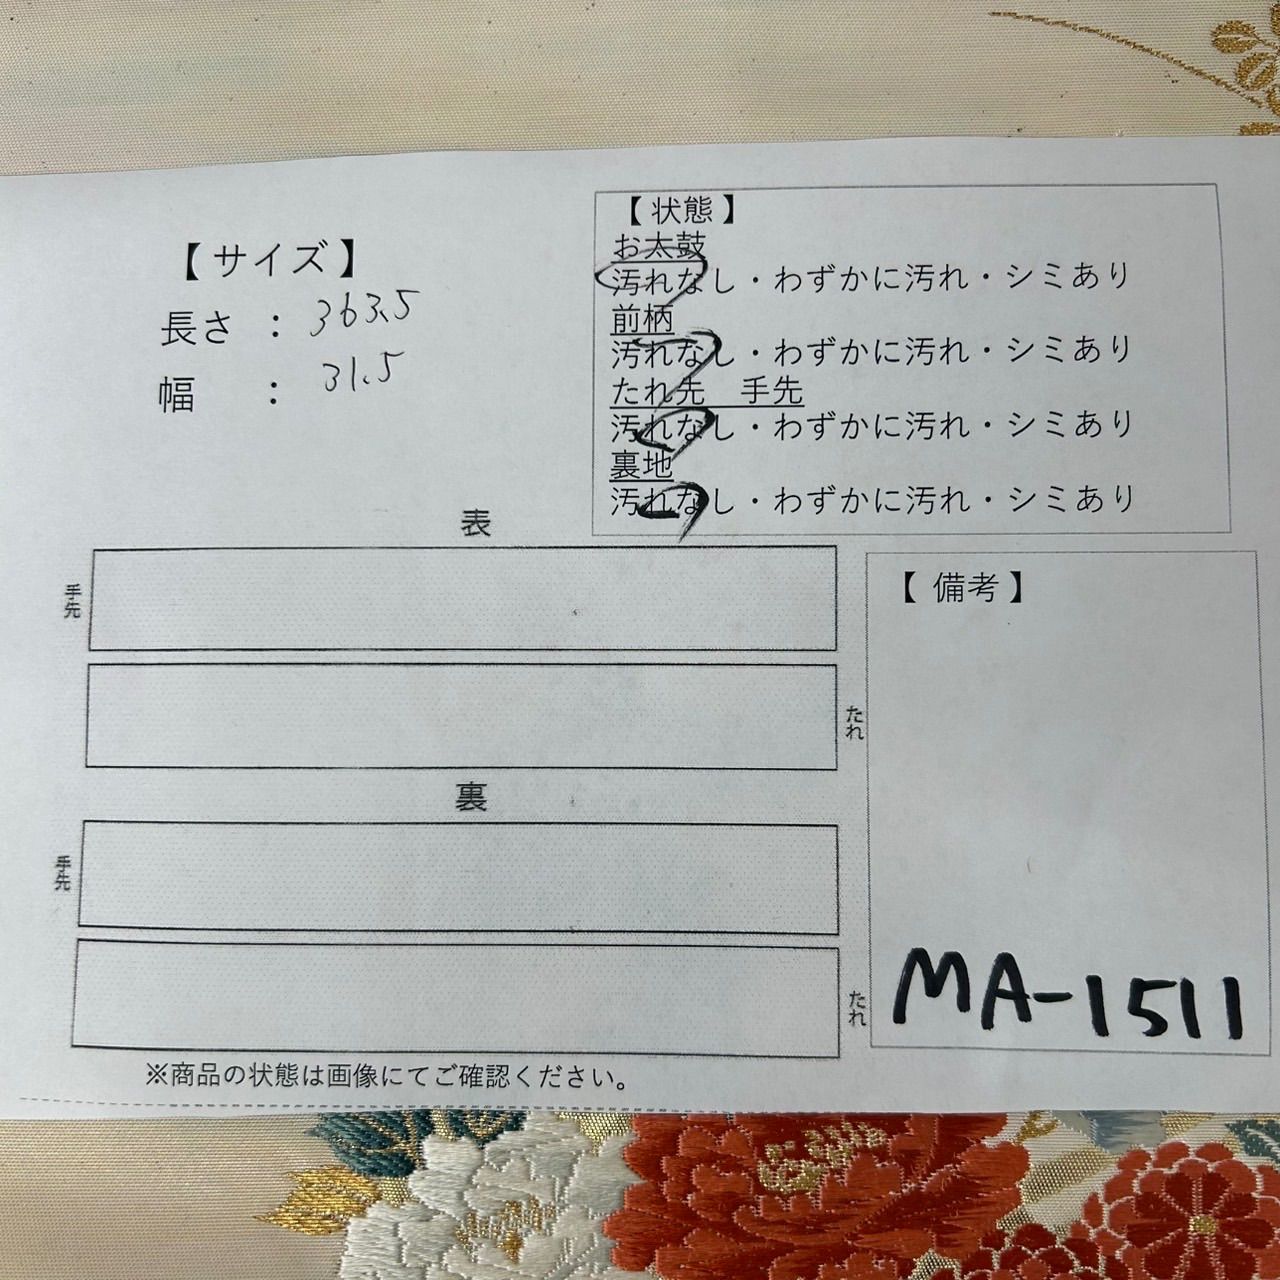 【サイズ】
長さ : 363.5
幅 : 31.5
【状態】
お太鼓
汚れなし・わずかに汚れ・シミあり
前柄
汚れなし・わずかに汚れ・シミあり
たれ先 手先
汚れなし・わずかに汚れ・シミあり
裏地
汚れなし・わずかに汚れ・シミあり
表
手先
たれ
裏
手先
たれ
【備考】
MA-1511
※商品の状態は画像にてご確認ください。